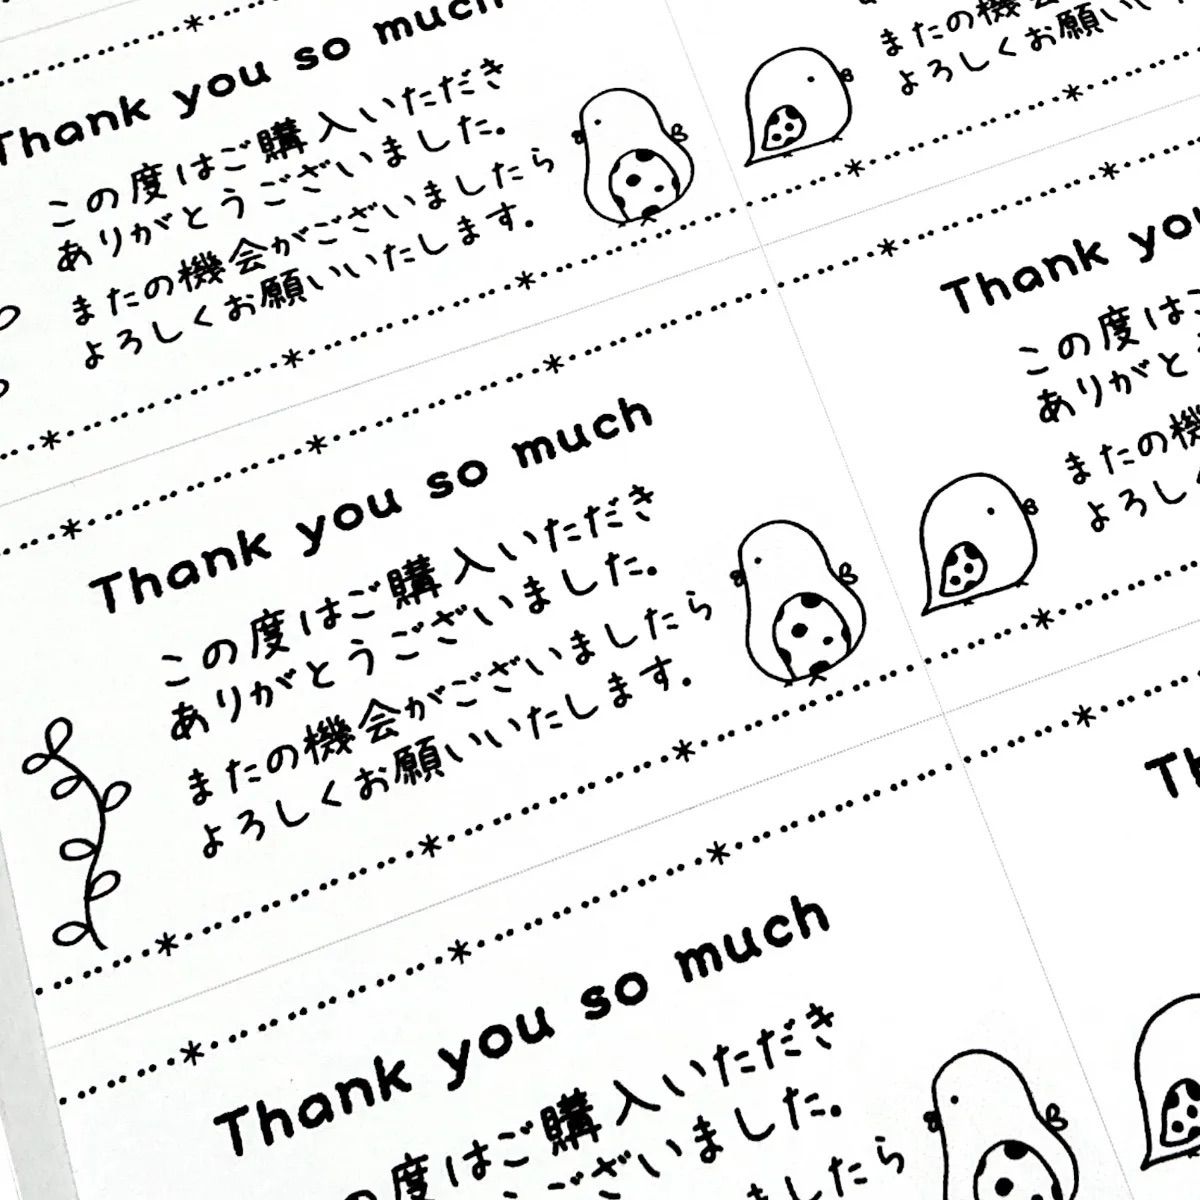 Thank you so much
この度はご購入いただき
ありがとうございました。
またの機会がございましたら
よろしくお願いいたします。
またの機会
よろしくお願いい
Thank you so much
この度はご購入いただき
ありがとうございました。
またの機会がございましたら
よろしくお願いいたします。
Thank you
この度は
ありがと
またの機
よろしく
Thank you so much
の度はご購入いただき
ございました。
したら
Th